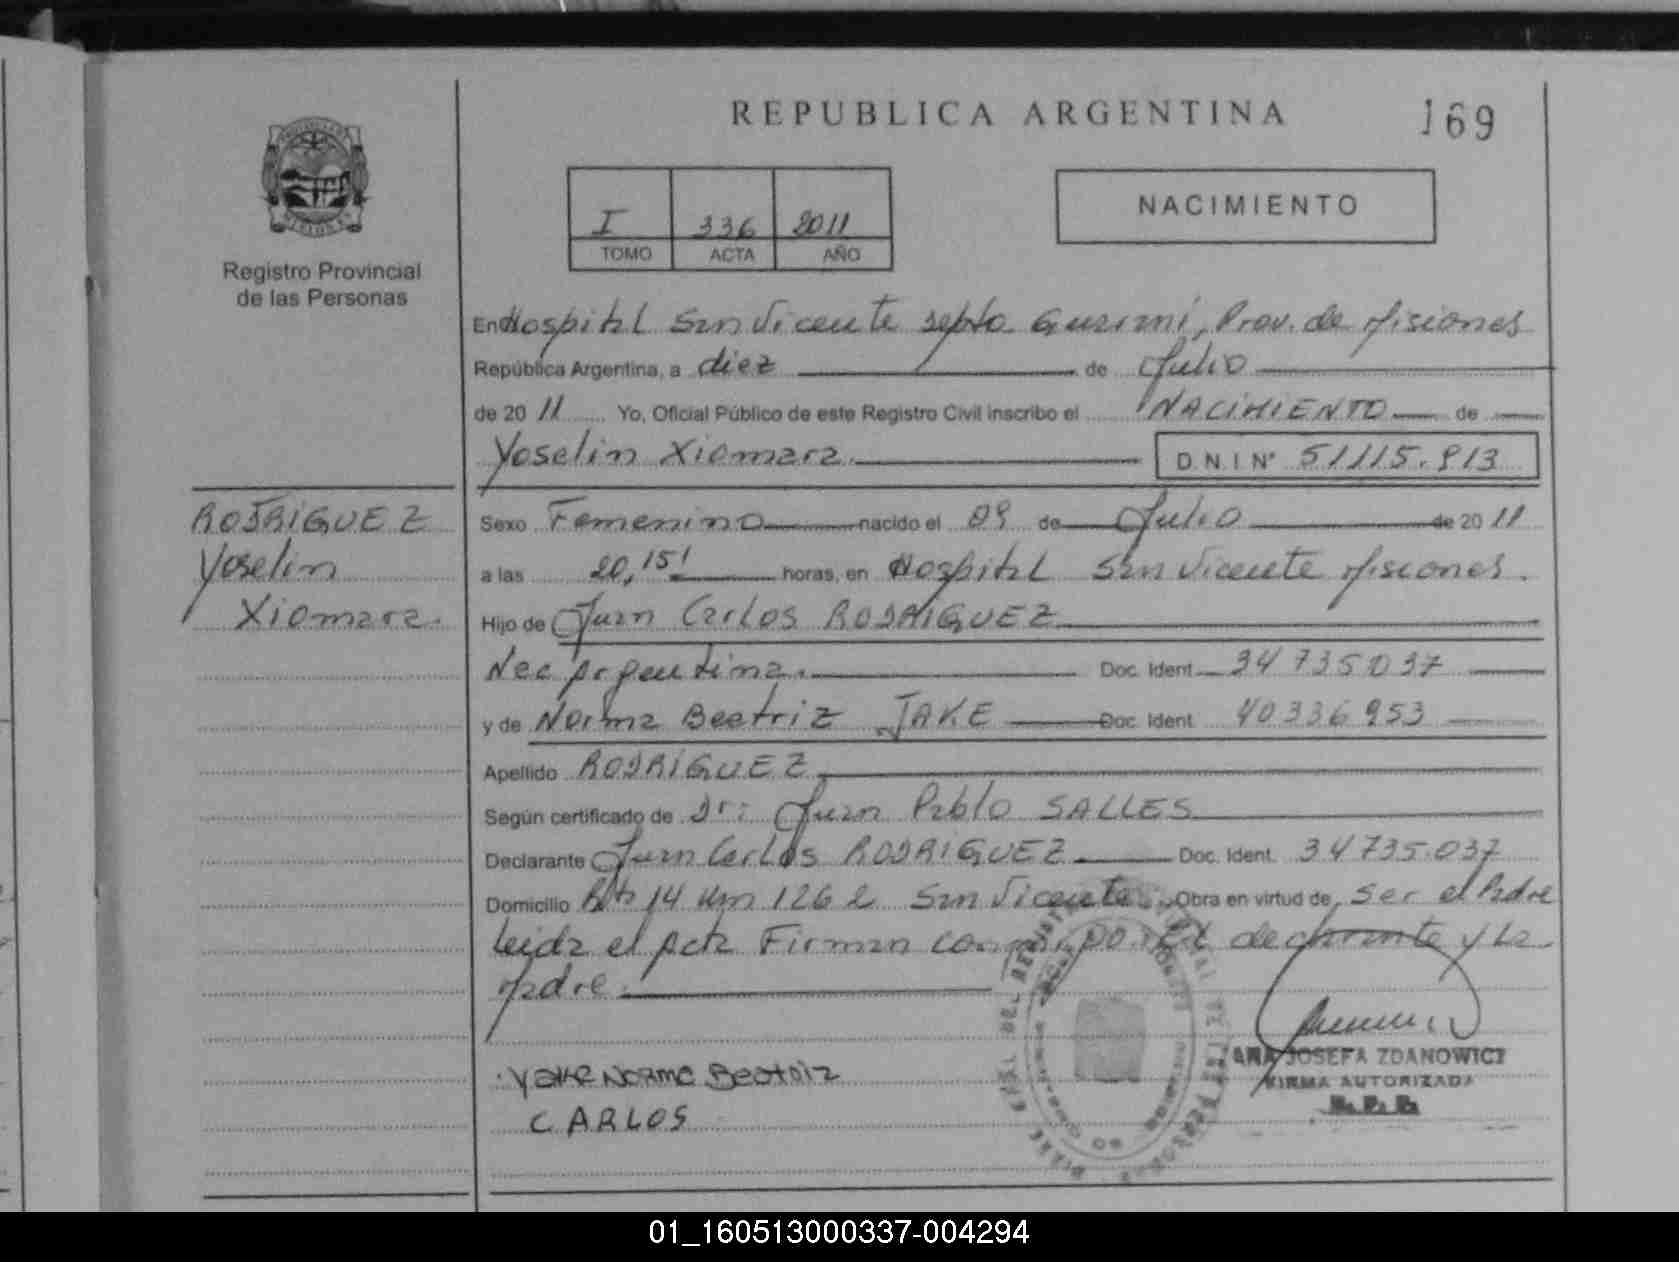 REPUBLICA ARGENTINA
169
I 336 2011
TOMO ACTA AÑO
NACIMIENTO
Registro Provincial
de las Personas
En Hospital San Vicente Depto Guarani, Prov. de Misiones
República Argentina, a diez de Julio
de 20 11 Yo, Oficial Público de este Registro Civil inscribo el NACIMIENTO de
Yoselin Xiomara. D.N.I Nº 51115.913
RODRIGUEZ
Yoselin
Xiomara.
Sexo Femenino nacido el 09 de Julio de 20 11
a las 20,15' horas, en Hospital San Vicente Misiones.
Hijo de Juan Carlos RODRIGUEZ
Nac Argentina. Doc. Ident. 34735037
y de Norma Beatriz JAKE Doc. Ident. 40336953
Apellido RODRIGUEZ
Según certificado de Dr: Juan Pablo SALLES
Declarante Juan Carlos RODRIGUEZ Doc. Ident. 34735.037
Domicilio Rta 14 Km 1262 San Vicente. Obra en virtud de, ser el Padre
leida el Acta Firman conmigo el declarante y la
Madre.
YAKE NORMA Beatriz
CARLOS
ANA JOSEFA ZDANOWICZ
FIRMA AUTORIZADA
R.P.P.
01_160513000337-004294